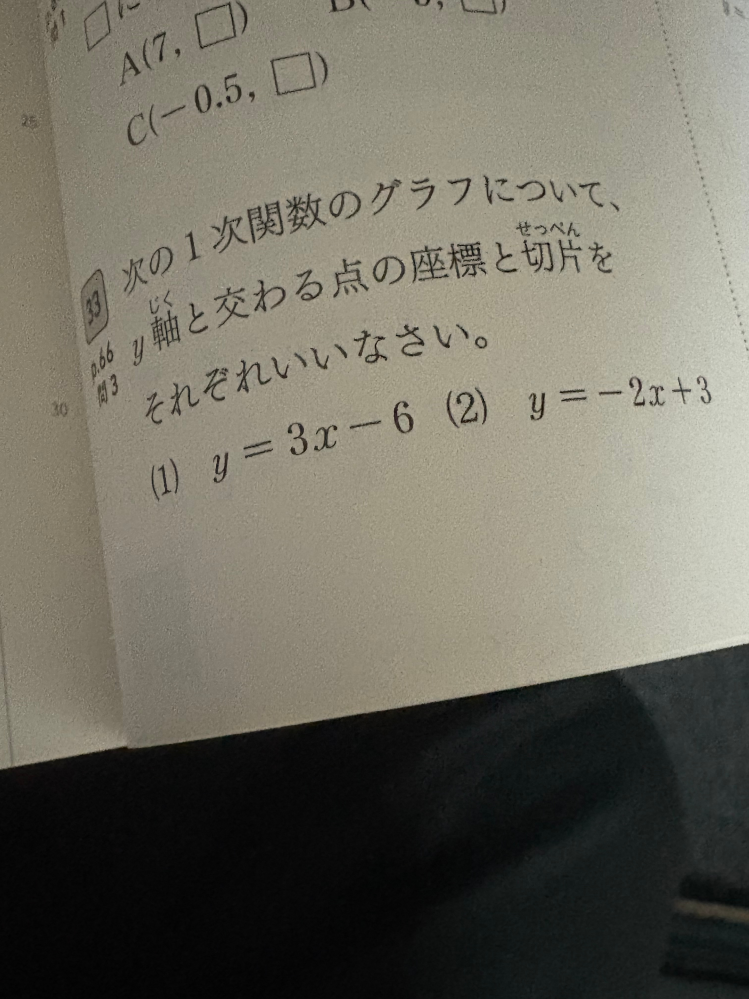 A(7, □)
C(−0.5, □)
25
次の1次関数のグラフについて、
せっぺん
33
y軸と交わる点の座標と切片を
じく
p.66
問3
それぞれいいなさい。
30
(1) y=3x−6 (2) y=−2x+3